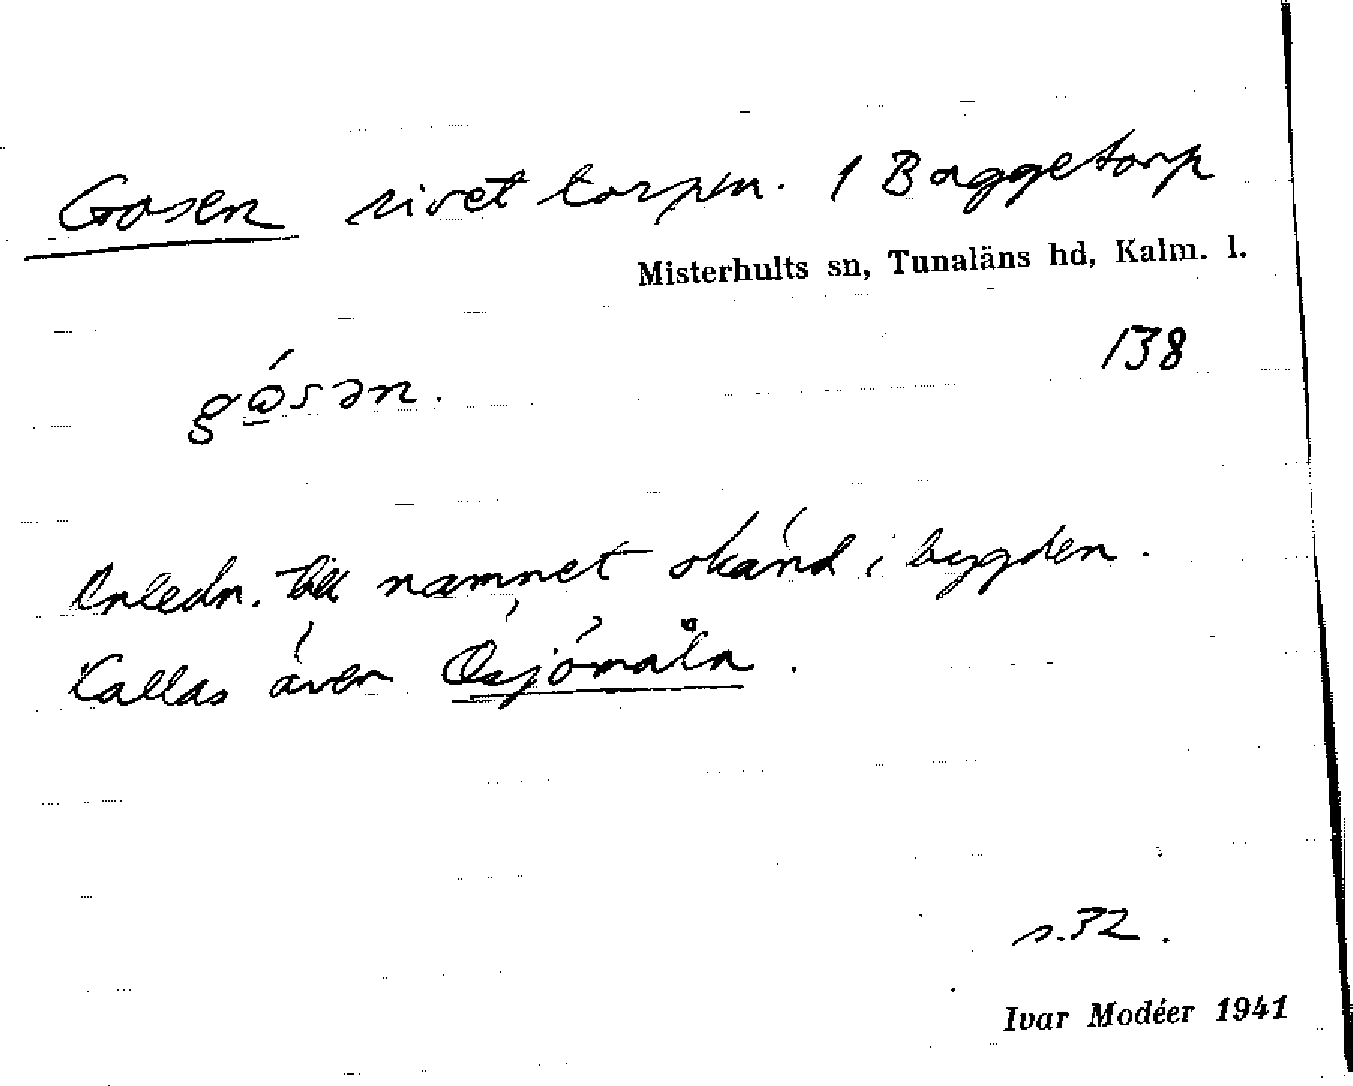 Gosen rivet torpst. 1 Baggetorp
Misterhults sn, Tunaläns hd, Kalm. l.
138
gó̲sən.
Anledn. till namnet okänd i bygden.
Kallas även Ösjömåln.
s. 32.
Ivar Modéer 1941